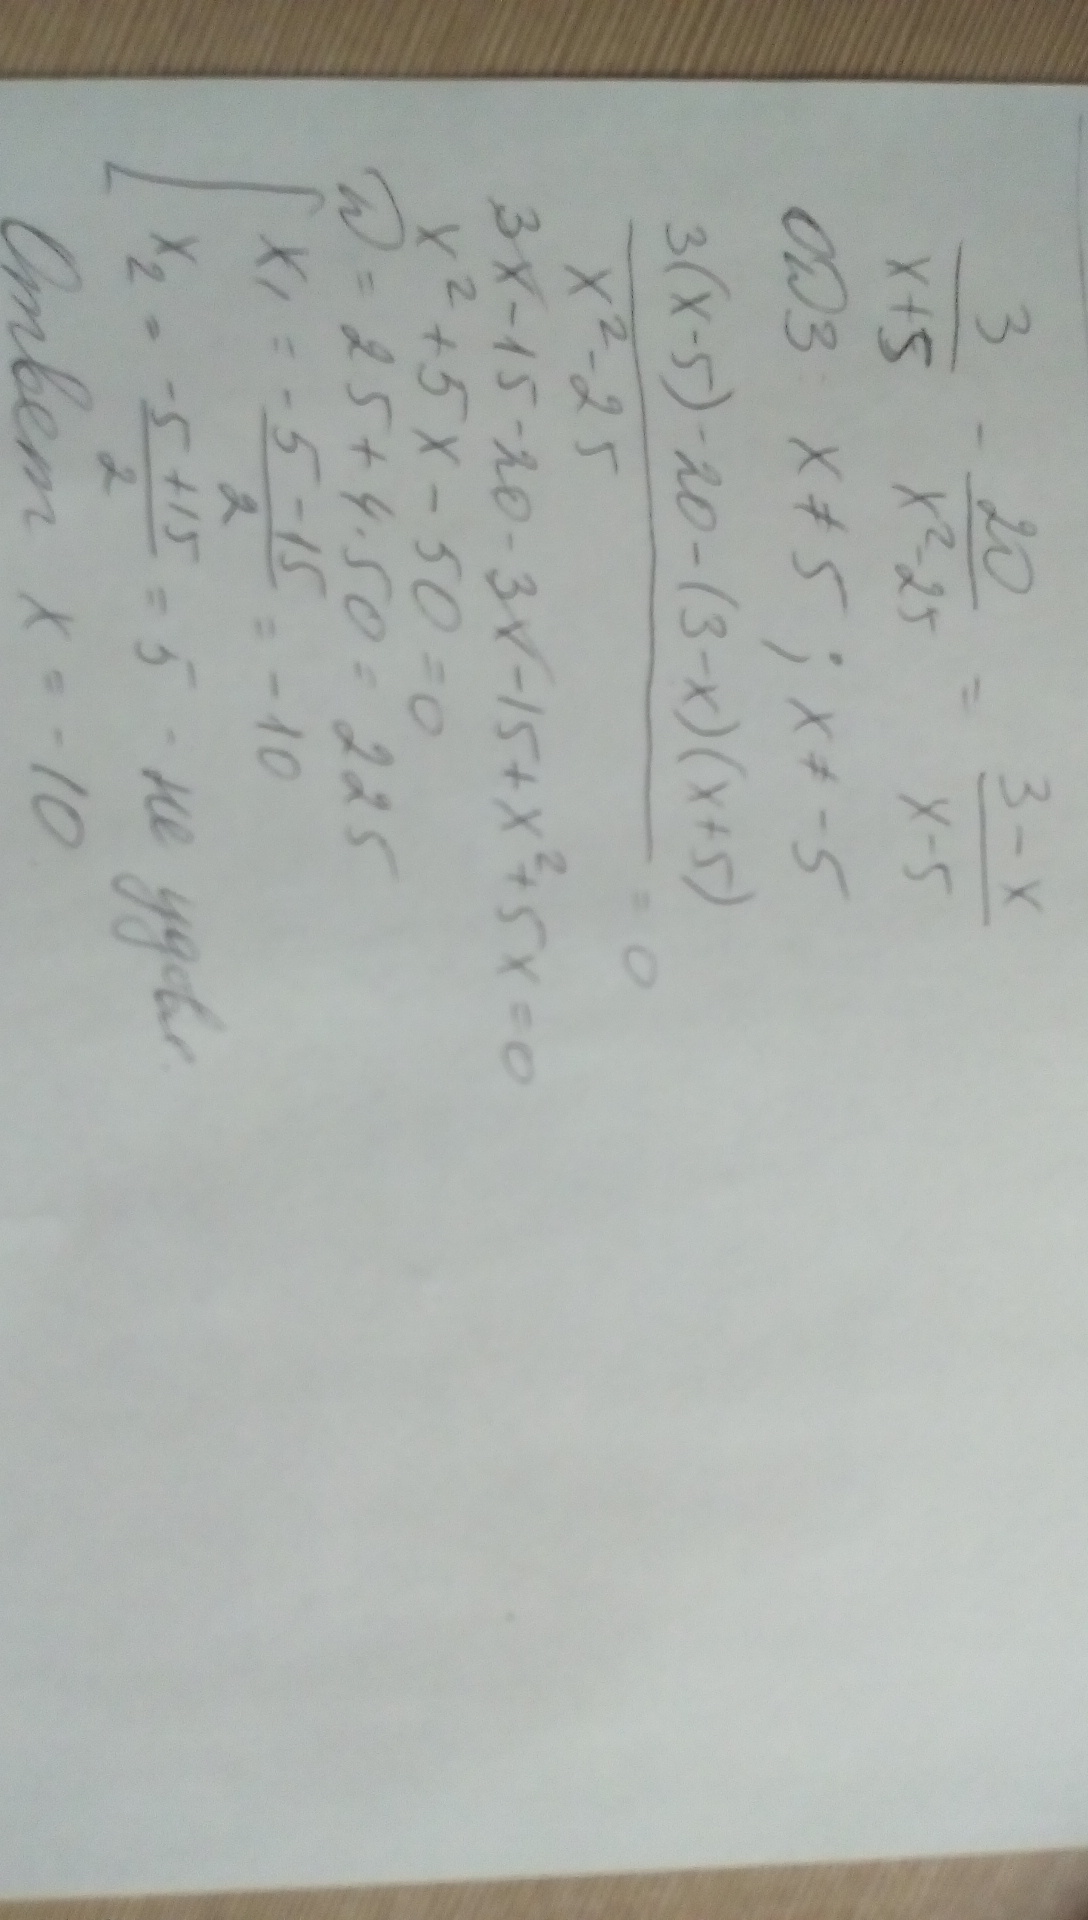 3/(x+5) - 20/(x²-25) = (3-x)/(x-5)
ОДЗ: x ≠ 5; x ≠ -5
(3(x-5)-20-(3-x)(x+5))/(x²-25) = 0
3x-15-20-3x-15+x²+5x=0
x²+5x-50=0
D = 25+4·50= 225
[x₁ = (-5-15)/2 = -10
x₂ = (-5+15)/2 = 5 - не удовл.
Ответ x = -10.